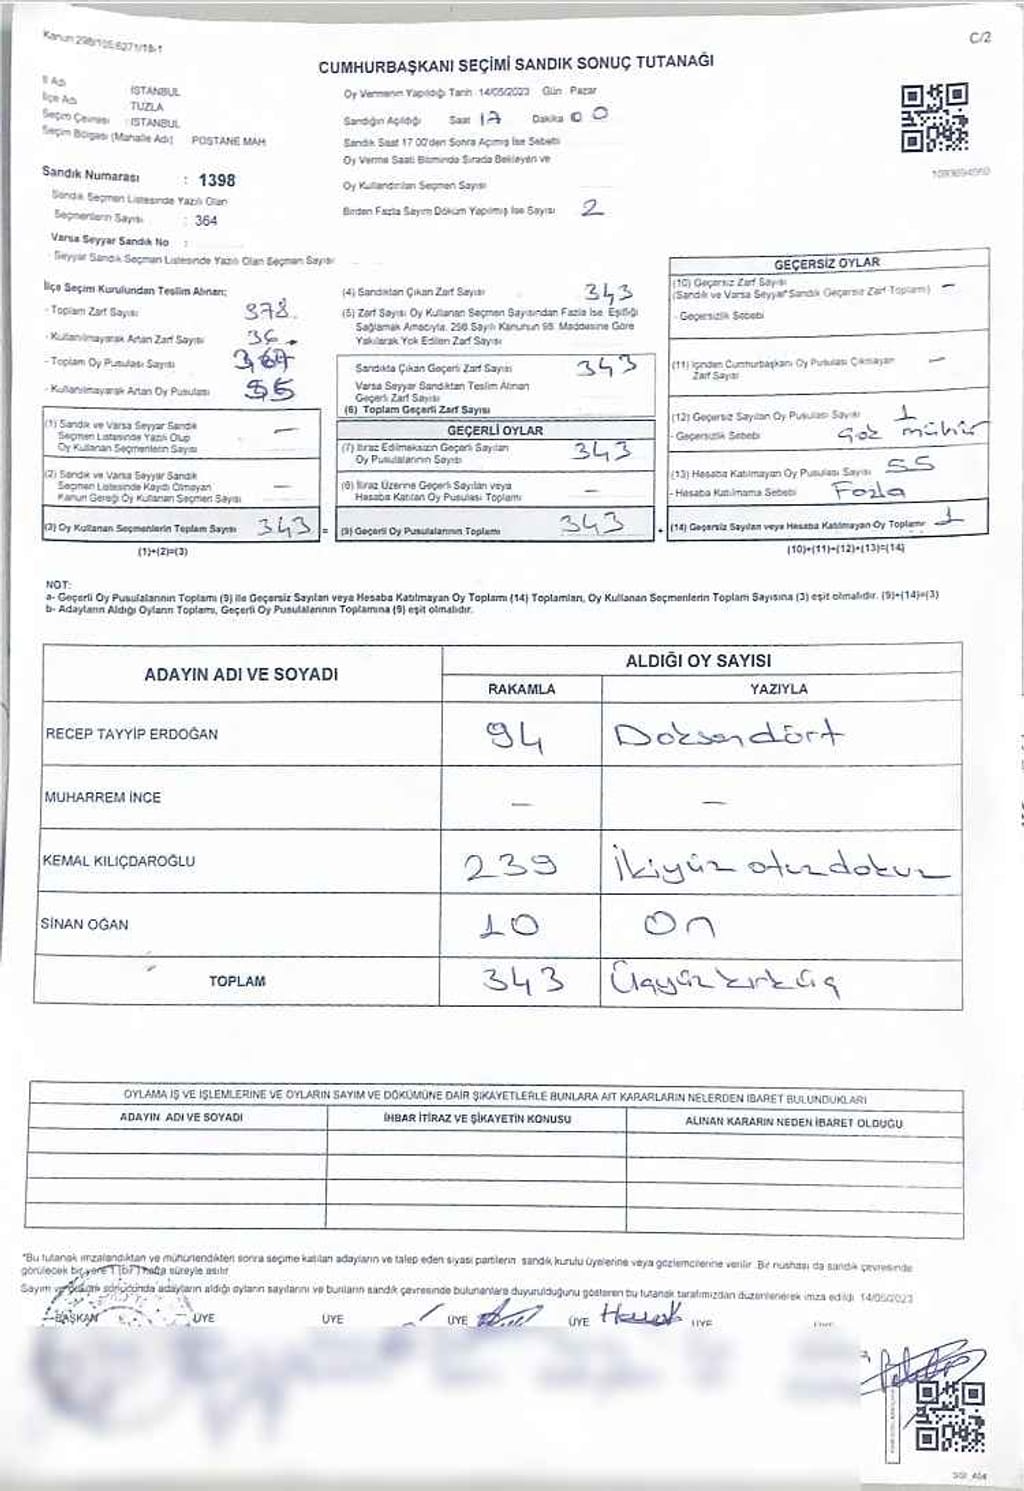 Kanun 298/105.6271/18-1
C/2
CUMHURBAŞKANI SEÇİMİ SANDIK SONUÇ TUTANAĞI
İl Adı : İSTANBUL
İlçe Adı : TUZLA
Seçim Çevresi : İSTANBUL
Seçim Bölgesi (Mahalle Adı) : POSTANE MAH
Sandık Numarası : 1398
Sandık Seçmen Listesinde Yazılı Olan
Seçmenlerin Sayısı : 364
Varsa Seyyar Sandık No :
- Seyyar Sandık Seçmen Listesinde Yazılı Olan Seçmen Sayısı
Oy Vermenin Yapıldığı Tarih 14/05/2023 Gün Pazar
Sandığın Açıldığı Saat 17 Dakika 00
Sandık Saat 17.00'den Sonra Açılmış İse Sebebi
Oy Verme Saati Bitiminde Sırada Bekleyen ve
Oy Kullandırılan Seçmen Sayısı
Birden Fazla Sayım Döküm Yapılmış İse Sayısı 2
İlçe Seçim Kurulundan Teslim Alınan;
- Toplam Zarf Sayısı 378.
- Kullanılmayarak Artan Zarf Sayısı
- Toplam Oy Pusulası Sayısı
- Kullanılmayarak Artan Oy Pusulası
(1) Sandık ve Varsa Seyyar Sandık
Seçmen Listesinde Yazılı Olup
Oy Kullanan Seçmenlerin Sayısı —
(2) Sandık ve Varsa Seyyar Sandık
Seçmen Listesinde Kaydı Olmayan
Kanun Gereği Oy Kullanan Seçmen Sayısı —
(3) Oy Kullanan Seçmenlerin Toplam Sayısı 343 =
(1)+(2)=(3)
(4) Sandıktan Çıkan Zarf Sayısı 343
(5) Zarf Sayısı Oy Kullanan Seçmen Sayısından Fazla İse, Eşitliği
Sağlamak Amacıyla, 298 Sayılı Kanunun 98. Maddesine Göre
Yakılarak Yok Edilen Zarf Sayısı
Sandıkta Çıkan Geçerli Zarf Sayısı 343
Varsa Seyyar Sandıktan Teslim Alınan
Geçerli Zarf Sayısı
(6) Toplam Geçerli Zarf Sayısı
GEÇERLİ OYLAR
(7) İtiraz Edilmeksizin Geçerli Sayılan
Oy Pusulalarının Sayısı 343
(8) İtiraz Üzerine Geçerli Sayılan veya
Hesaba Katılan Oy Pusulası Toplamı —
(9) Geçerli Oy Pusulalarının Toplamı 343 +
GEÇERSİZ OYLAR
(10) Geçersiz Zarf Sayısı —
(Sandık ve Varsa Seyyar Sandık Geçersiz Zarf Toplamı)
- Geçersizlik Sebebi
(11) İçinden Cumhurbaşkanı Oy Pusulası Çıkmayan —
Zarf Sayısı
(12) Geçersiz Sayılan Oy Pusulası Sayısı 1
- Geçersizlik Sebebi çok mühür
(13) Hesaba Katılmayan Oy Pusulası Sayısı 55
- Hesaba Katılmama Sebebi Fazla
(14) Geçersiz Sayılan veya Hesaba Katılmayan Oy Toplamı 1
(10)+(11)+(12)+(13)=(14)
NOT:
a- Geçerli Oy Pusulalarının Toplamı (9) ile Geçersiz Sayılan veya Hesaba Katılmayan Oy Toplamı (14) Toplamları, Oy Kullanan Seçmenlerin Toplam Sayısına (3) eşit olmalıdır. (9)+(14)=(3)
b- Adayların Aldığı Oyların Toplamı, Geçerli Oy Pusulalarının Toplamına (9) eşit olmalıdır.
ADAYIN ADI VE SOYADI
ALDIĞI OY SAYISI
RAKAMLA YAZIYLA
RECEP TAYYİP ERDOĞAN 94 Doksandört
MUHARREM İNCE — —
KEMAL KILIÇDAROĞLU 239 İkiyüz otuzdokuz
SİNAN OĞAN 10 On
TOPLAM 343 Üçyüzkırküç
OYLAMA İŞ VE İŞLEMLERİNE VE OYLARIN SAYIM VE DÖKÜMÜNE DAİR ŞİKAYETLERLE BUNLARA AİT KARARLARIN NELERDEN İBARET BULUNDUKLARI
ADAYIN ADI VE SOYADI İHBAR İTİRAZ VE ŞİKAYETİN KONUSU ALINAN KARARIN NEDEN İBARET OLDUĞU
*Bu tutanak imzalandıktan ve mühürlendikten sonra seçime katılan adayların ve talep eden siyasi partilerin sandık kurulu üyelerine veya gözlemcilerine verilir. Bir nüshası da sandık çevresinde
görülecek bir yere 1 (bir) hafta süreyle asılır
Sayım ve döküm sonucunda adayların aldığı oyların sayılarını ve bunların sandık çevresinde bulunanlara duyurulduğunu gösteren bu tutanak tarafımızdan düzenlenerek imza edildi 14/05/2023
BAŞKAN ÜYE ÜYE ÜYE ÜYE ÜYE